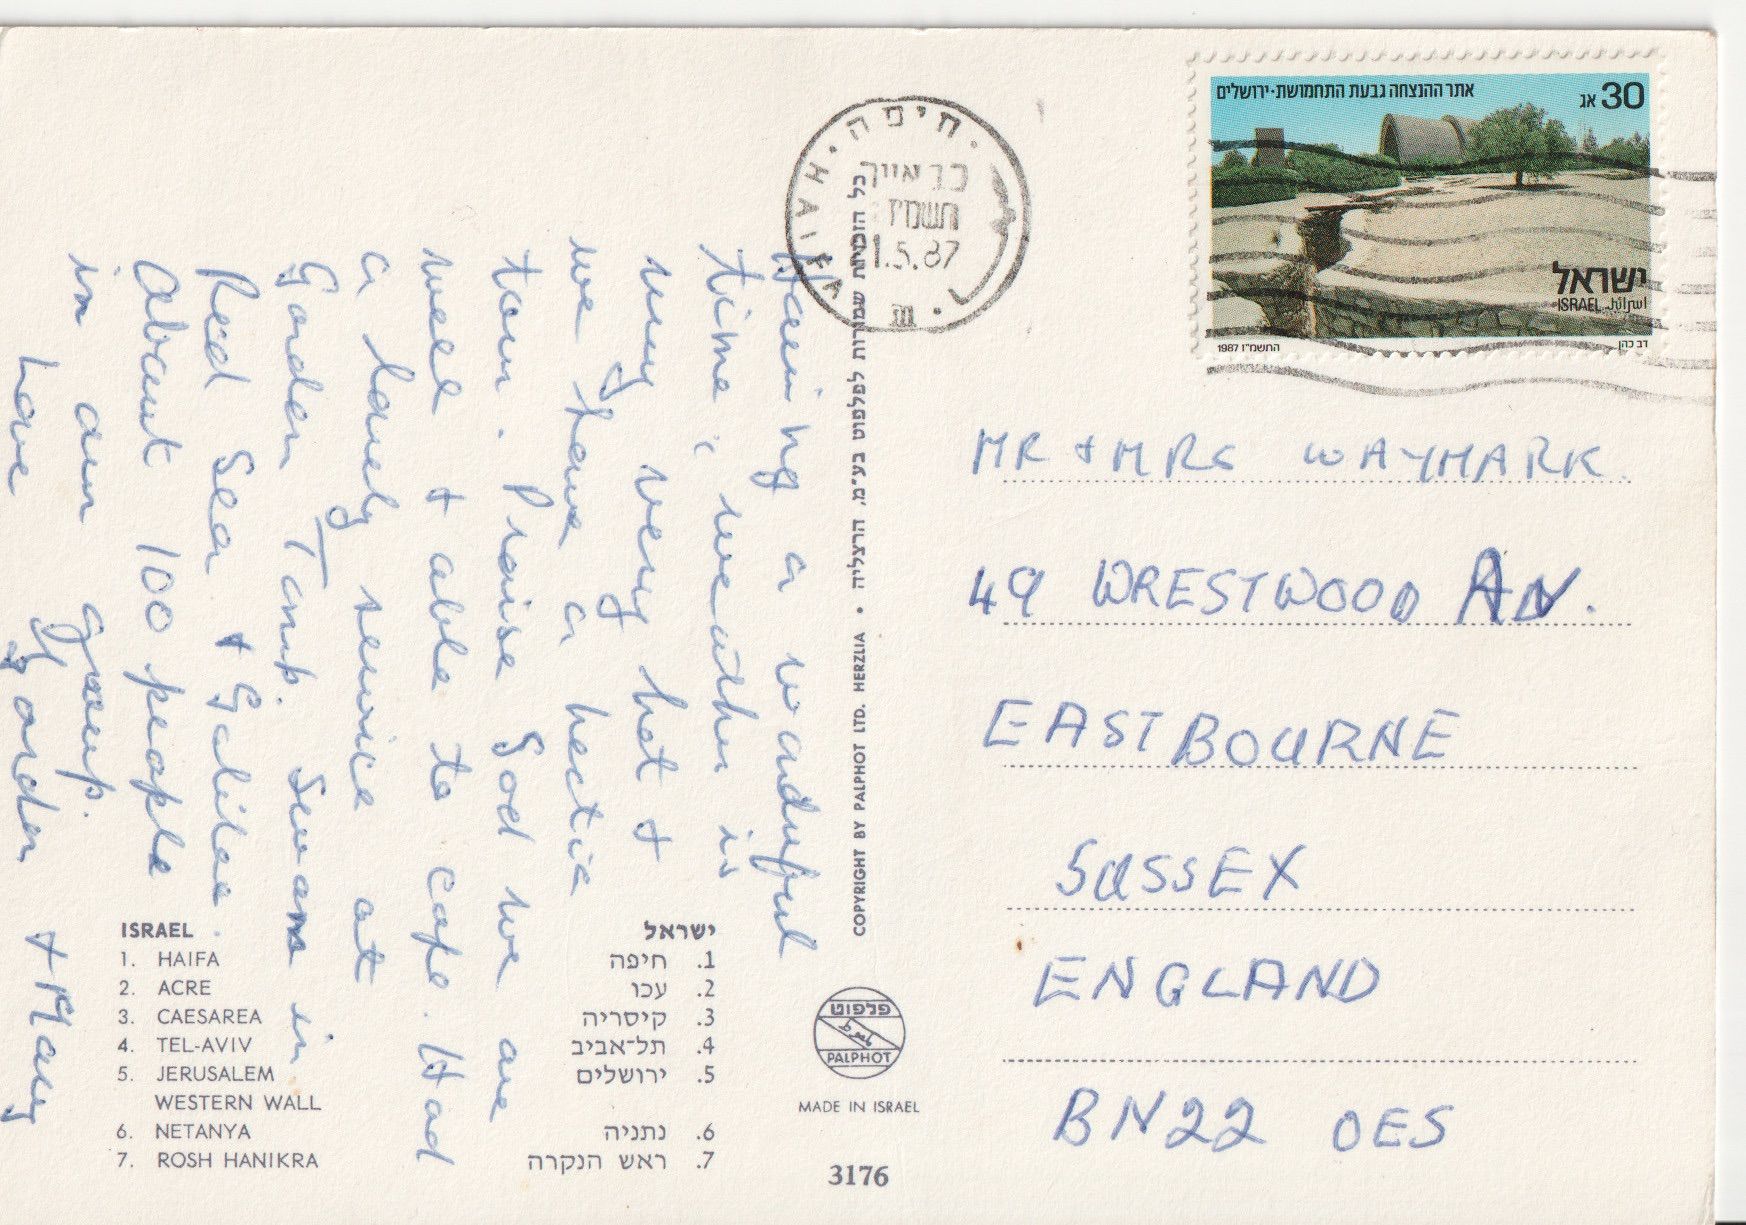 Having a wonderful
time, weather is
very very hot &
we have a hectic
tour. Praise God we are
well & able to cope. Had
a lovely service at
Garden Tomb. Swam in
Red Sea & Galilee.
About 100 people
in our group.
Love
Gordon & Mary
חיפה · HAIFA
תשמ"ז
1.5.87
אתר ההנצחה גבעת התחמושת·ירושלים
30 אג
ישראל
ISRAEL اسرائيل
1987 התשמ"ז
דב כהן
MR & MRS WAYMARK.
49 WRESTWOOD AV.
EASTBOURNE
SUSSEX
ENGLAND
BN22 0ES
COPYRIGHT BY PALPHOT LTD. HERZLIA • כל הזכויות שמורות לפלפוט בע"מ, הרצליה
ISRAEL ישראל
1. HAIFA 1. חיפה
2. ACRE 2. עכו
3. CAESAREA 3. קיסריה
4. TEL-AVIV 4. תל־אביב
5. JERUSALEM 5. ירושלים
WESTERN WALL
6. NETANYA 6. נתניה
7. ROSH HANIKRA 7. ראש הנקרה
פלפוט
PALPHOT
MADE IN ISRAEL
3176